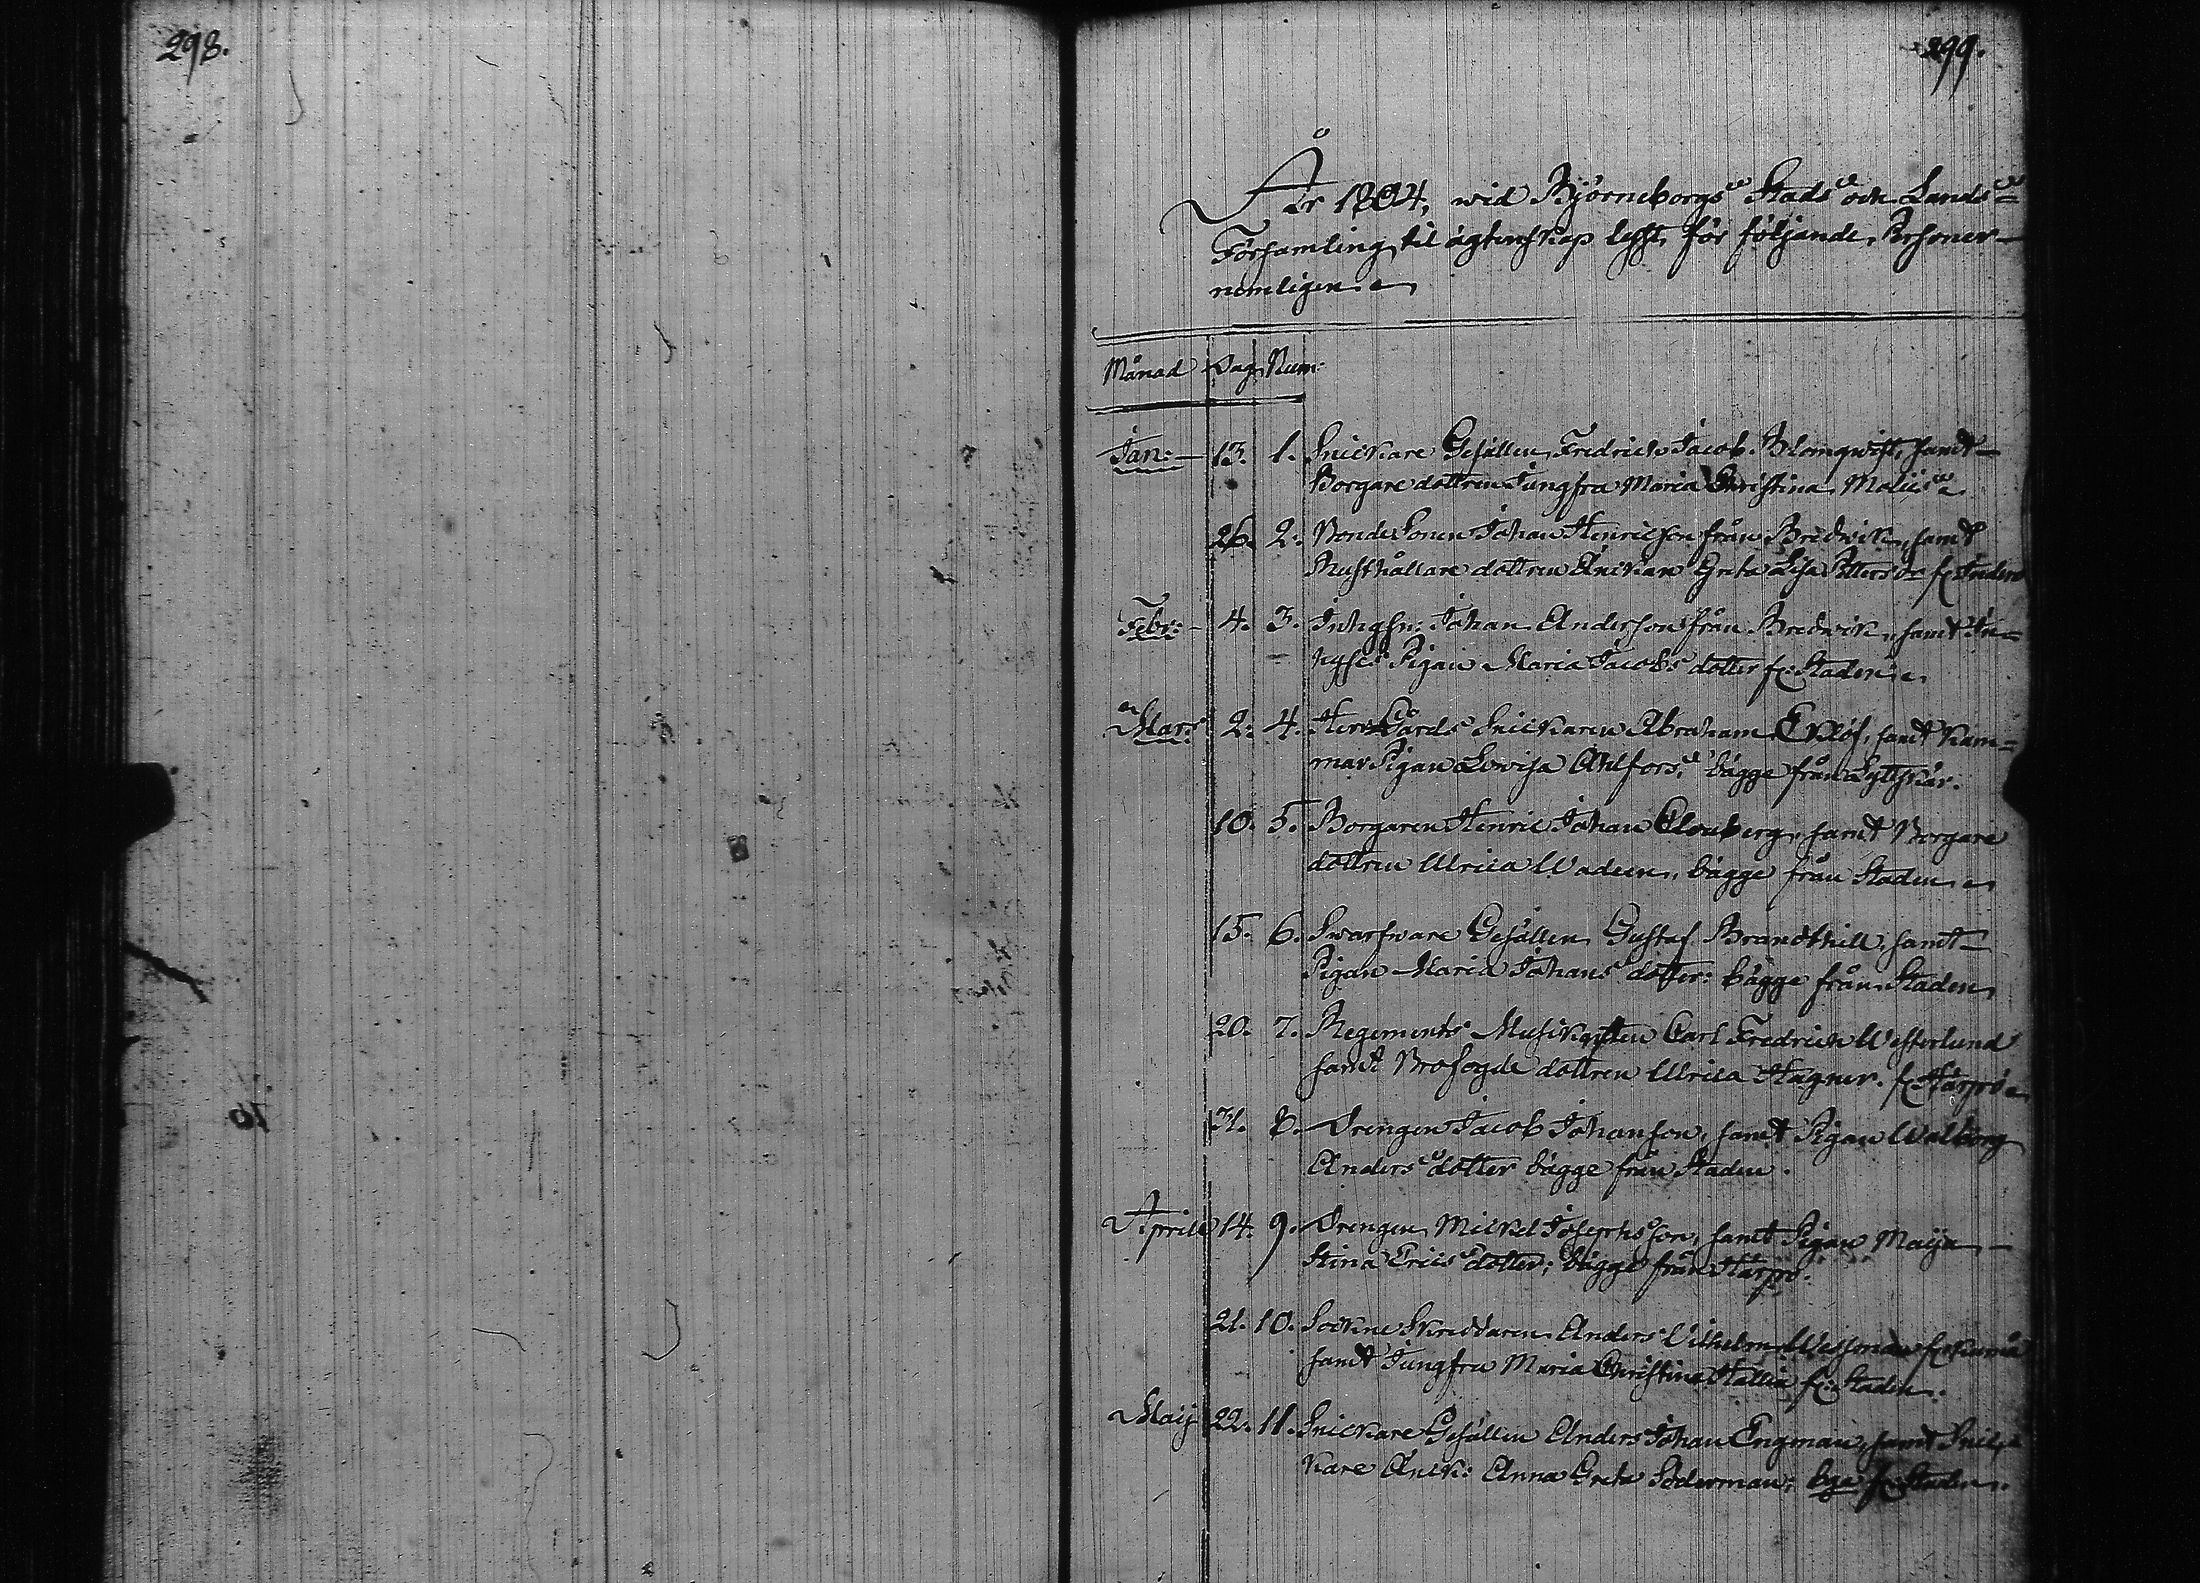 298.
299.
År 1804, wid Björneborgs Stads och Lands=
Församling, til ägtenskap lyst, för följande Personer
nemligen.
Månad Dag Num:
Jan: 13. 1. Snickare Gesällen Fredrich Jacob Blomqwist, samt
Borgare dottren Jungfru Maria Christina Moliis
26. 2. Bonde Sonen Johan Henricson från Bredwik, samt
Rusthållare dottren Änkan Greta Lisa
Febr: 4. 3. Inhyses: Johan Anderson från Bredwik, samt In=
hyses Pigan Maria Jacobs dotter fr: Staden
Mars 2. 4. HerrGårds Snickaren Abraham Eklöf, samt Kam=
mar Pigan Lovisa Ahlfors, bägge från Lyttskär.
10. 5. Borgaren Henric Johan Clouberg, samt Borgare
dottren Ulrica Wadeen, bägge från Staden
15. 6. Swarfware Gesällen Gustaf Brandthill, samt
Pigan Maria Johans dotter: bägge från Staden
20. 7. Regements Musikanten Carl Fredrich Westerlund
samt Brofogde dottren Ulrica Hagner. fr: Härpö
31. 8. Drengen Jacob Johanson, samt Pigan Walborg
Anders dotter bägge från Staden.
Aprill 14. 9. Drengen Mickel Josephsson, samt Pigan Maija
Stina Erics dotter; bägge från Härpö.
21. 10. Sockne Skreddaren Anders Vilhelm
samt Jungfru Maria Christina Hallia fr: Staden.
Maij 22. 11. Snickare Gesällen Anders Johan Engman, samt Snic=
kare Änk: Anna Greta Söderman; bge fr: Staden.